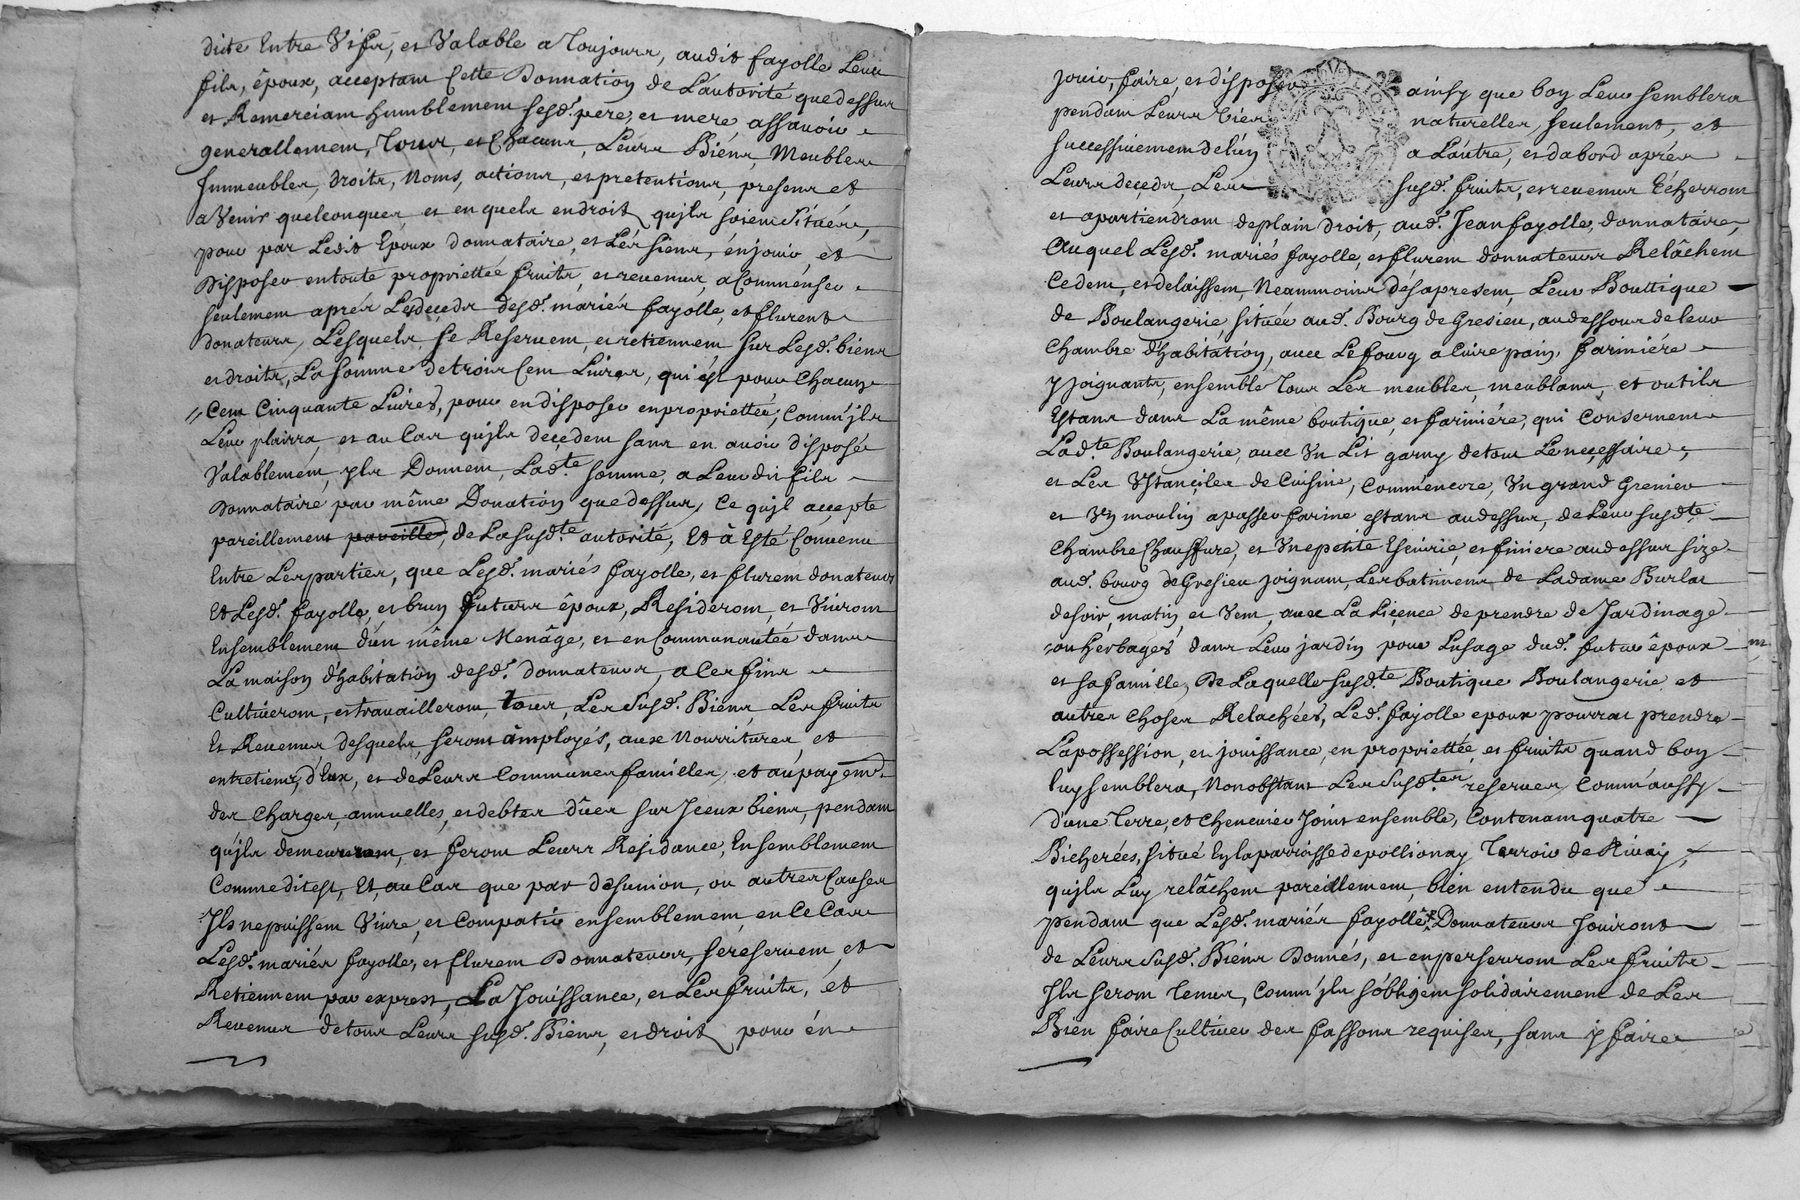 dite Entre Vifs, et Valable a Toujours, audit fayolle Leur
fils, êpoux, acceptant Cette Donnation de L'autorité que dessus
et Remerciant humblement sesd. pere, et mere, assavoir
generallement, Tous, et Chacuns, Leurs Biens, Meubles
Immeubles, droits, Noms, actions, et pretentions, presens et
a Venir quelconques, et en quels endroit qu'jls soient Situés,
pour par Ledit Epoux donnataire, et Les siens, en jouir, et
Disposer en toute propriettée fruits, et revenus, a Commenser
seulement aprés Les deceds desd. mariés fayolle, et flurent
donateurs, Lesquels se Reservent, et retiennent sur Lesd. biens
et droits, La somme de trois Cent Livres, qui est pour Chacun
Cent Cinquante Livres, pour en disposer en propriettée, Comm'jls
Leur plairra, et au Cas qu'jls decedent sans en avoir disposé
Valablement, jls Donnent, Ladte somme, a Leur dit fils
Donnataire par même Donation que dessus, Ce qu'jl accepte
pareillement pareille, de La susdte autorité, Et à Esté Convenu
Entre Les parties, que Lesd. mariés fayolle, et flurent donateurs
Et Lesd. fayolle, et brun futurs êpoux, Resideront, et Vivront
Ensemblement d'un même Menâge, et en Communautée dans
La maison d'habitation desd. donnateurs, a Ces fins
Cultiveront, et travailleront, tous, Les susd. Biens, Les fruits
Et Revenus desquels, seront âmployés, aux Nourritures, et
entretiens, d'Eux, et de Leurs Communes familles, et au payemt.
des Charges, annuelles, et debtes dûes sur Jceux biens, pendant
qu'jls demeureront, et feront Leurs Residance, Ensemblement
Comme dit est, Et, au Cas que par desunion, ou autres Causes
Jls ne puissent Vivre, et Compatir ensemblement, en Ce Cas
Lesd. mariés fayolle, et flurent Donnateurs, se reservent, et
Retiennent par exprest, La Jouissance, et Les fruits, et
Revenus de tous Leurs susd. Biens, et droit pour en
jouir, faire, et disposer ainsy que bon Leur semblera
pendant Leurs Vies naturelles, seulement, et
successivement de l'un a L'autre, et dabord aprés
Leurs deceds, Les susd. fruits, et revenus Echerront
et apartiendront de plain droit, aud. Jean fayolle, donnataire,
Auquel Lesd. mariés fayolle, et flurent donnateurs Relâchent
Cedent, et delaissent, Neammoins dés apresent, Leur Bouttique
de Boulangerie, située aud. Bourg de Gresieu, au dessous de leur
Chambre d'habitation, avec Le fourg a Cuire pain, farinière
y joignants, ensemble Tous Les meubles, meublans, et outils
Estans dans La même boutique, et farinière, qui Consernent
Ladte Boulangerie, avec Un Lit garny de tout Le necessaire,
et Les Ustanciles de Cuisine, Comm'encore, Un grand Grenier
et Un moulin a passer farine estans au dessus, de Leur susdte
Chambre Chauffure, et Une petite Ecuirie, et finiere au dessus size
aud. bourg de Gresieu joignant Les batimens de La dame Burlat
de soir, matin, et Vent, avec La Licence de prendre de Jardinage
ou Herbages dans Leur jardin pour L'usage dud. futur êpoux
et sa famille, De Laquelle susdte Boutique Boulangerie et
autres Choses Relachées, Led. fayolle epoux pourrat prendre
La possession, et jouissance, en propriettée, et fruits quand bon
luy semblera, Nonobstant Les susdtes reserves, Comm'aussy
d'une Terre, et Chenevier Joint ensemble, Contenant quatre
Bicherées, situé En la parroisse de pollionay Terroir de Rivay,
qu'jls Luy relâchent pareillement, bien entendu que
pendant que Lesd. mariés fayolle Donnateurs Jouiront
de Leurs susd. Biens Donnés, et en perseuront Les fruits
Jls seront Tenus, Comm'jls s'obligent solidairement de Les
Bien faire Cultiver des fassons requises, sans y faire